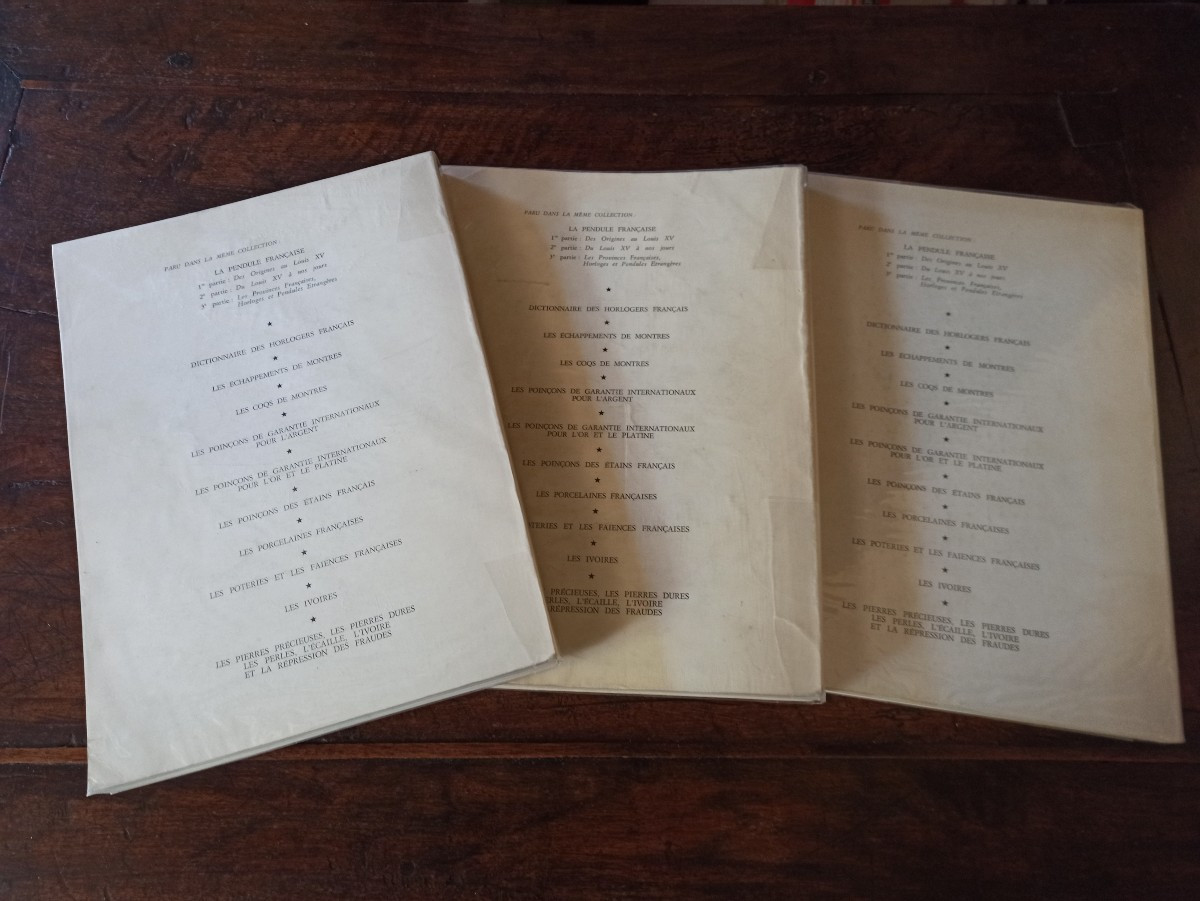 PARU DANS LA MÊME COLLECTION :
LA PENDULE FRANÇAISE
1re partie : Des Origines au Louis XV
2e partie : Du Louis XV à nos jours
3e partie : Les Provinces Françaises,
Horloges et Pendules Étrangères
★
DICTIONNAIRE DES HORLOGERS FRANÇAIS
★
LES ÉCHAPPEMENTS DE MONTRES
★
LES COQS DE MONTRES
★
LES POINÇONS DE GARANTIE INTERNATIONAUX
POUR L'ARGENT
★
LES POINÇONS DE GARANTIE INTERNATIONAUX
POUR L'OR ET LE PLATINE
★
LES POINÇONS DES ÉTAINS FRANÇAIS
★
LES PORCELAINES FRANÇAISES
★
LES POTERIES ET LES FAÏENCES FRANÇAISES
★
LES IVOIRES
★
LES PIERRES PRÉCIEUSES, LES PIERRES DURES
LES PERLES, L'ÉCAILLE, L'IVOIRE
ET LA RÉPRESSION DES FRAUDES
PARU DANS LA MÊME COLLECTION :
LA PENDULE FRANÇAISE
1re partie : Des Origines au Louis XV
2e partie : Du Louis XV à nos jours
3e partie : Les Provinces Françaises,
Horloges et Pendules Étrangères
★
DICTIONNAIRE DES HORLOGERS FRANÇAIS
★
LES ÉCHAPPEMENTS DE MONTRES
★
LES COQS DE MONTRES
★
LES POINÇONS DE GARANTIE INTERNATIONAUX
POUR L'ARGENT
★
LES POINÇONS DE GARANTIE INTERNATIONAUX
POUR L'OR ET LE PLATINE
★
LES POINÇONS DES ÉTAINS FRANÇAIS
★
LES PORCELAINES FRANÇAISES
★
POTERIES ET LES FAÏENCES FRANÇAISES
★
LES IVOIRES
★
PRÉCIEUSES, LES PIERRES DURES
L'ÉCAILLE, L'IVOIRE
RÉPRESSION DES FRAUDES
PARU DANS LA MÊME COLLECTION :
LA PENDULE FRANÇAISE
1re partie : Des Origines au Louis XV
2e partie : Du Louis XV à nos jours
3e partie : Les Provinces Françaises,
Horloges et Pendules Étrangères
★
DICTIONNAIRE DES HORLOGERS FRANÇAIS
★
LES ÉCHAPPEMENTS DE MONTRES
★
LES COQS DE MONTRES
★
LES POINÇONS DE GARANTIE INTERNATIONAUX
POUR L'ARGENT
★
LES POINÇONS DE GARANTIE INTERNATIONAUX
POUR L'OR ET LE PLATINE
★
LES POINÇONS DES ÉTAINS FRANÇAIS
★
LES PORCELAINES FRANÇAISES
★
LES POTERIES ET LES FAÏENCES FRANÇAISES
★
LES IVOIRES
★
LES PIERRES PRÉCIEUSES, LES PIERRES DURES
LES PERLES, L'ÉCAILLE, L'IVOIRE
ET LA RÉPRESSION DES FRAUDES